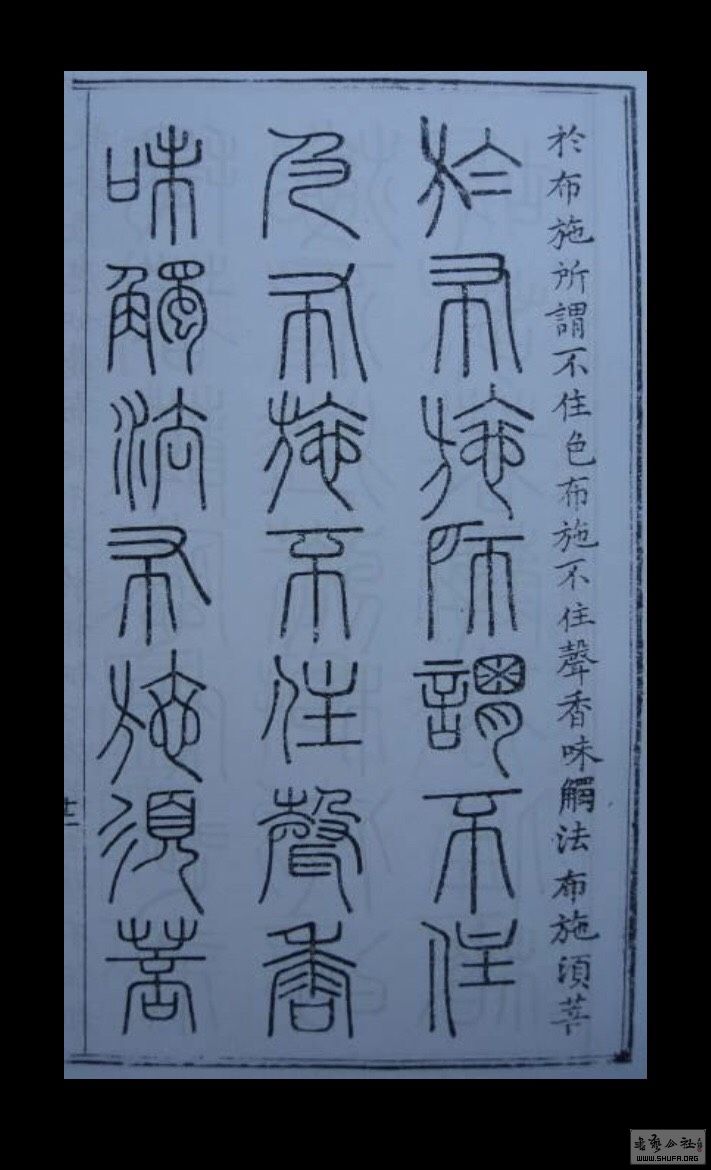 於布施所謂不住色布施不住聲香味觸法布施須菩
於布施所謂不住
色布施不住聲香
味觸法布施須菩
十二
書藝公社
WWW.SHUFA.ORG